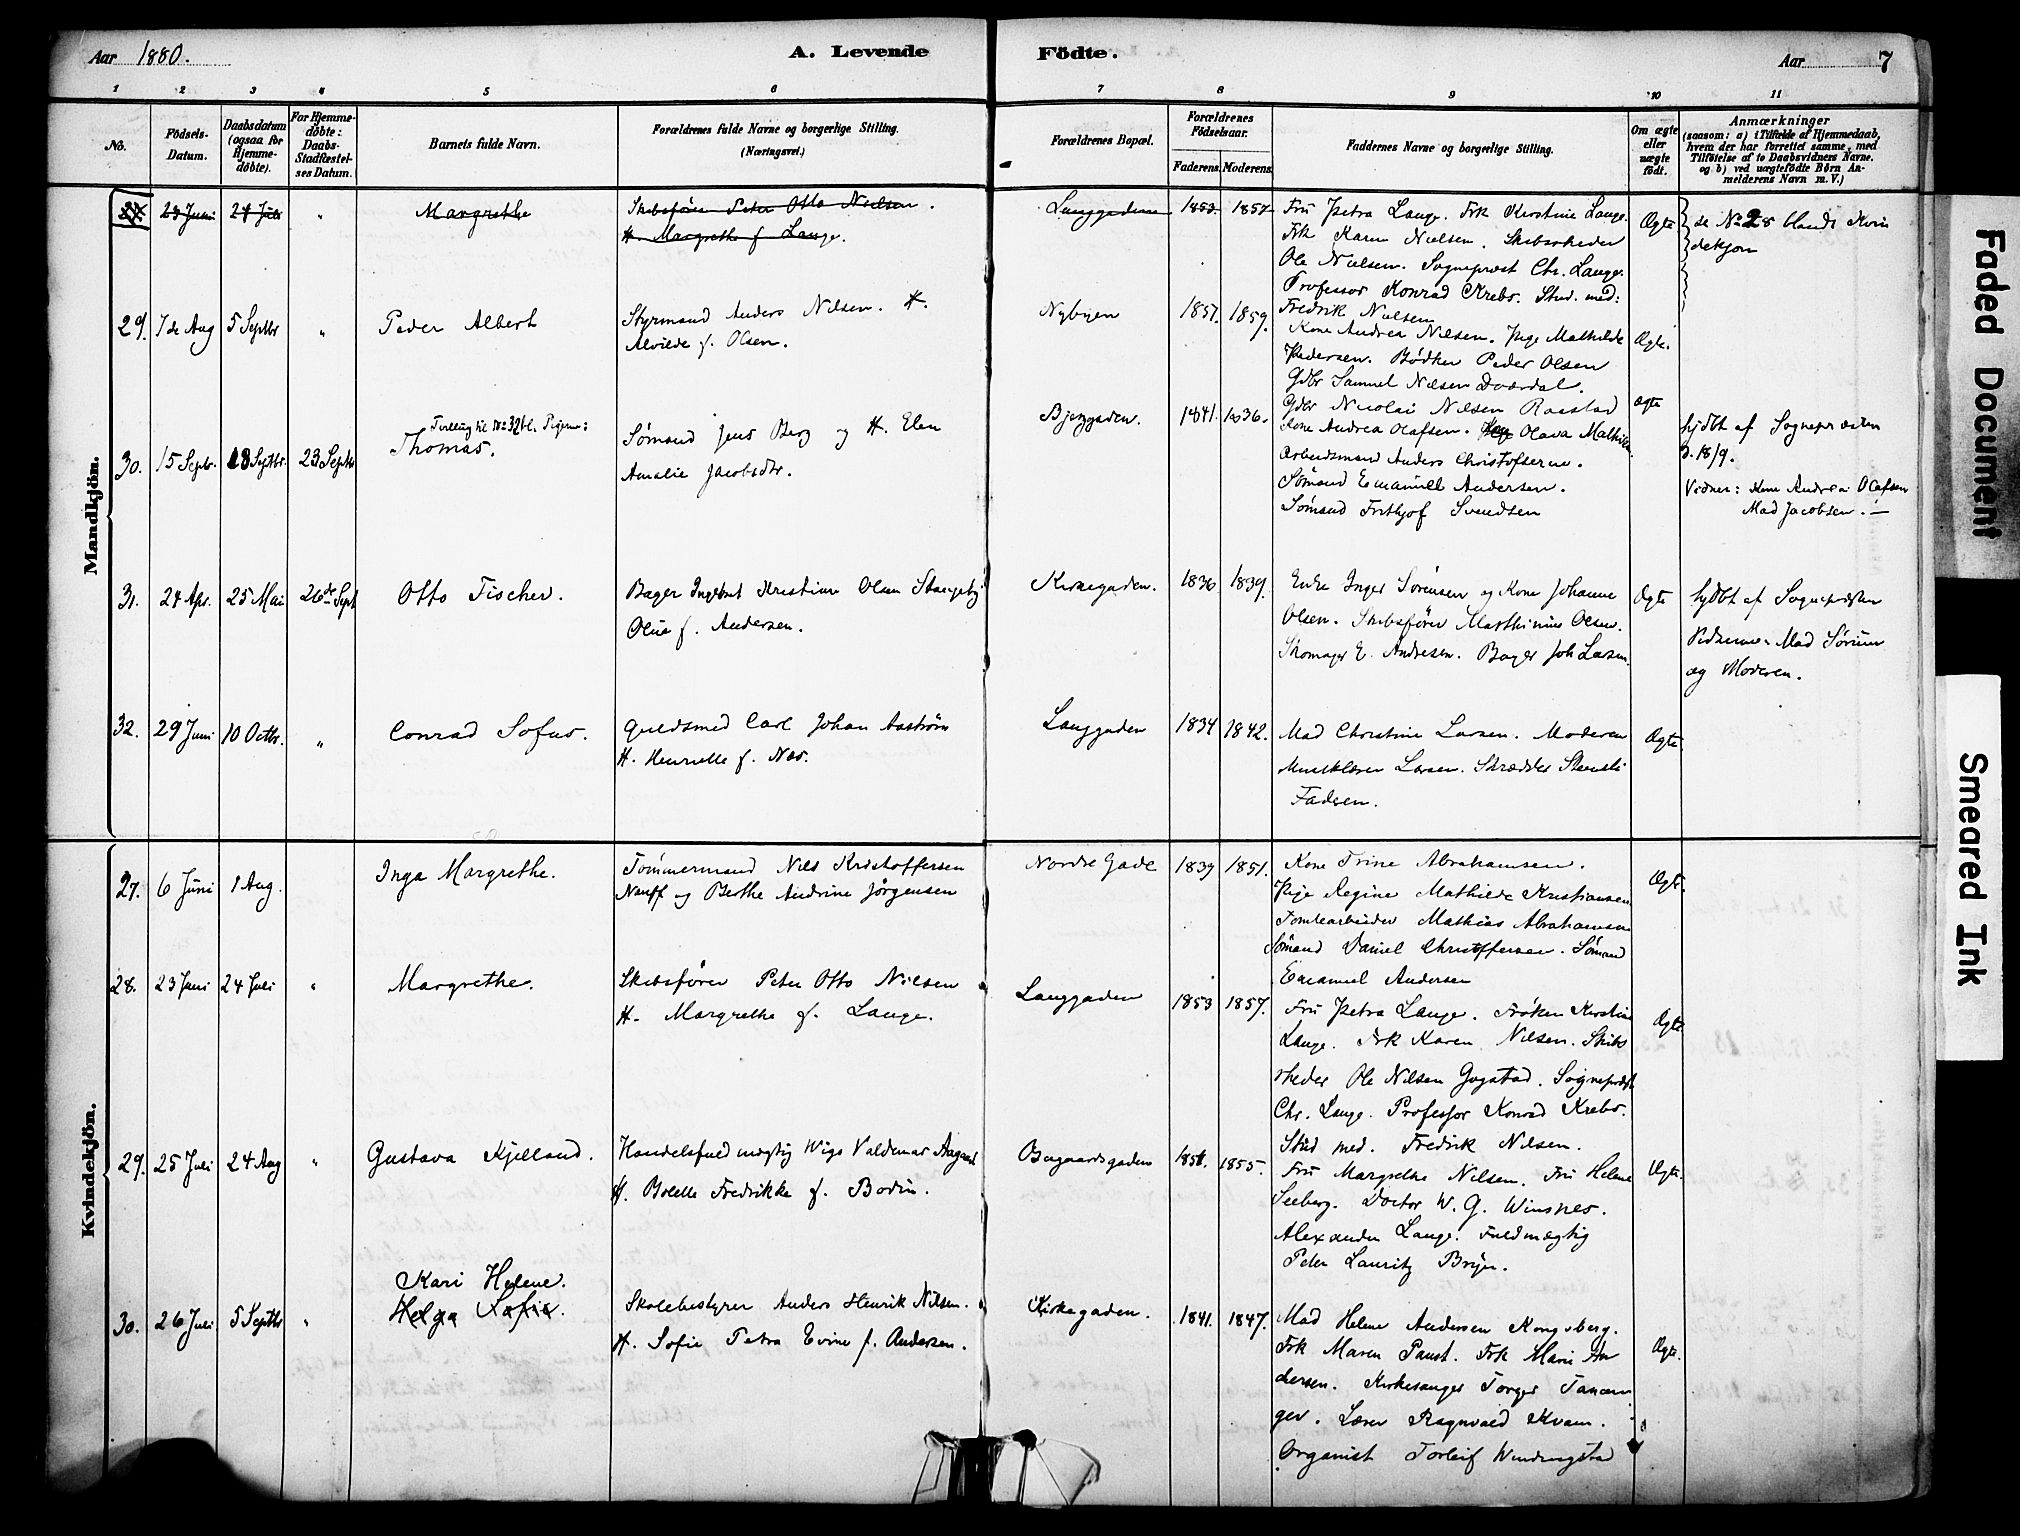 Aar 1880.
A. Levende Födte.
Aar 7
1 2 3 4 5 6 7 8 9 10 11
No.
Födsels-Datum.
Daabsdatum (ogsaa for Hjemme-döbte).
For Hjemme-döbte: Daabs-Stadfæstel-ses Datum.
Barnets fulde Navn.
Forældrenes fulde Navne og borgerlige Stilling. (Næringsvei.)
Forældrenes Bopæl.
Forældrenes Födselsaar.
Faderens. Moderens.
Faddernes Navne og borgerlige Stilling.
Om ægte eller uægte født.
Anmærkninger
(saasom: a) i Tilfælde af Hjemmedaab,
hvem der har forrettet samme, med
Tilföielse af to Daabsvidners Navne.
og b) ved uægtefödte Börn An-
melderens Navn m. V.)
Mandkjön.
23 Juni 24 Juli " Margrethe
Skibsfører Peter Otto Nielsen.
H. Margrethe f. Lange.
Langgaden 1853 1857
Fru Petra Lange. Frk Kirstine Lange.
Frk Karen Nielsen. Skibsrheder
Ole Nielsen. Sognepræst Chr. Lange.
Professor Konrad Krebs. Stud. med:
Fredrik Nielsen
Ægte
se No 28 blandt Kvin
dekjøn
29. 7de Aug 5 Septbr " Peder Albert
Styrmand Anders Nilsen. H.
Alvilde f. Olsen.
Nybyen 1857. 1859.
Kone Andrea Nilsen. Pige Mathilde
Pedersen. Bødker Peder Olsen
Gdbr Samuel Nilsen
Ægte.
30. 15 Septbr. 18 Septbr. 23 Septbr
Tvilling til No 32 bl. Pigerne:
Thomas.
Sømand Jens Berg og H. Elen
Amalie Jacobsdtr.
1841. 1836.
Gdbr Nicolai Nilsen Raastad
Kone Andrea Olafsen. Olava Mathilde
Arbeidsmand Anders Christofersen.
Sømand Emanuel Andersen.
Sømand Frithjof Svendsen
Ægte
hjdbt af Sognepræsten
d. 18/9.
Vidner: Kone Andrea Olafsen
Mad Jacobsen. —
31. 24 Apr. 25 Mai 26de Sept Otto Fischer.
Bager Kristian Olsen
Olua f. Andersen.
Kirkegaden. 1836 1839.
Enke Inger Sørensen og Kone Johanne
Olsen. Skibsfører Marthinius Olsen.
Skomager E. Andresen. Bager Joh Larsen
Ægte
hjdbt af Sognepræsten
Vidnerne: Mad Sørum
og Moderen.
32. 29 Juni 10 Octbr. " Conrad Sofus.
Guldsmed Carl Johan Aastrøm
H. Henriette f. Næs.
Langgaden 1834 1842.
Mad Christine Larsen. Moderen
Musiklærer Larsen. Skrædder
Faderen.
Ægte
Kvindekjön.
27. 6 Juni 1 Aug. Inga Margrethe.
Tømmermand Nils Kristoffersen
Nauff og Berthe Andrine Jørgensen
Nordre Gade 1839 1851.
Kone Trine Abrahamsen.
Pige Regine Mathilde Kristiansen
Tomtearbeider Mathias Abrahamsen
Sømand Daniel Christoffersen. Sømand
Emanuel Andersen
Ægte.
28. 23 Juni 24 Juli " Margrethe.
Skibsfører Peter Otto Nilsen
H. Margrethe f. Lange.
Langgaden 1853 1857.
Fru Petra Lange. Frøken Kirstine
Lange. Frk Karen Nilsen. Skibs
rheder Ole Nilsen Gogstad. Sognepræst
Chr. Lange. Professor Konrad Krebs.
Stud med. Fredrik Nilsen.
Ægte
29. 25 Juli 24 Aug " Gustava Kjelland.
Handelsfuldmægtig Wigo Valdemar Aagaard
H. Bolette Fredrikke f. Bodin.
1855.
Fru Margrethe Nilsen. Fru Helene
Seeberg. Doctor W. G. Winsnes.
Alexander Lange. Fuldmægtig
Peter Lauritz Bryn.
Ægte.
30. 26 Juli 5 Septbr "
Kari Helene.
Helga Sofie.
Skolebestyrer Anders Henrik Nilsen.
H. Sofie Petra Evine f. Andersen.
Kirkegaden. 1841. 1847.
Mad Helene Andersen Kongsberg.
Frk Maren Paust. Frk Marie An
dersen. Kirkesanger Torger Tanem
ger. Lærer Ragnvald Kvam.
Organist Torleif
Ægte.
Faded Document
Smeared Ink